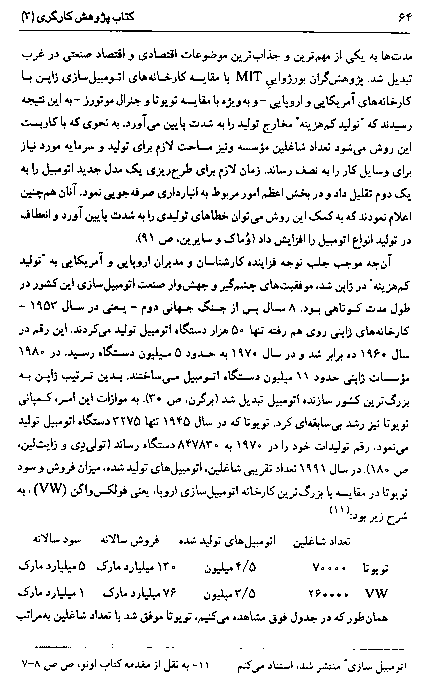 ۶۴ کتاب پژوهش کارگری (۳)
مدت‌ها به یکی از مهم‌ترین و جذاب‌ترین موضوعات اقتصادی و اقتصاد صنعتی در غرب
تبدیل شد. پژوهش‌گران بورژوایی MIT با مقایسه کارخانه‌های اتومبیل‌سازی ژاپن با
کارخانه‌های آمریکایی و اروپایی -و به‌ویژه با مقایسه تویوتا و جنرال موتورز -به این نتیجه
رسیدند که "تولید کم‌هزینه" مخارج تولید را به شدت پایین می‌آورد. به نحوی که با کاربست
این روش می‌شود تعداد شاغلین مؤسسه ونیز مساحت لازم برای تولید و سرمایه مورد نیاز
برای وسایل کار را به نصف رساند. زمان لازم برای طرح‌ریزی یک مدل جدید اتومبیل را به
یک دوم تقلیل داد و در بخش اعظم امور مربوط به انبارداری صرفه‌جویی نمود. آنان هم‌چنین
اعلام نمودند که به کمک این روش می‌توان خطاهای تولیدی را به شدت پایین آورد و انعطاف
در تولید انواع اتومبیل را افزایش داد (وُماک و سایرین، ص ۹۱).
آن‌چه موجب جلب توجه فزاینده کارشناسان و مدیران اروپایی و آمریکایی به "تولید
کم‌هزینه" در ژاپن شد، موفقیت‌های چشم‌گیر و جهش‌وار صنعت اتومبیل‌سازی این کشور در
طول مدت کوتاهی بود. ۸ سال پس از جنگ جهانی دوم - یعنی در سال ۱۹۵۳ -
کارخانه‌های ژاپنی روی هم رفته تنها ۵۰ هزار دستگاه اتومبیل تولید می‌کردند. این رقم در
سال ۱۹۶۰ ده برابر شد و در سال ۱۹۷۰ به حدود ۵ میلیون دستگاه رسید. در ۱۹۸۰
مؤسسات ژاپنی حدود ۱۱ میلیون دستگاه اتومبیل می‌ساختند. بدین ترتیب ژاپن به
بزرگ‌ترین کشور سازنده اتومبیل تبدیل شد (برگرن، ص ۳۰). به موازات این امر، کمپانی
تویوتا نیز رشد بی‌سابقه‌ای کرد. تویوتا که در سال ۱۹۴۵ تنها ۳۲۷۵ دستگاه اتومبیل تولید
می‌نمود، رقم تولیدات خود را در ۱۹۷۰ به ۸۴۷۸۳۰ دستگاه رساند (تولی‌دِی و زایت‌لین،
ص ۱۸۰). در سال ۱۹۹۱ تعداد تقریبی شاغلین، اتومبیل‌های تولید شده، میزان فروش و سود
تویوتا در مقایسه با بزرگ‌ترین کارخانه اتومبیل‌سازی اروپا، یعنی فولکس‌واگن (VW)، به
شرح زیر بود:(۱۱)
تعداد شاغلین اتومبیل‌های تولید شده فروش سالانه سود سالانه
تویوتا ۷۰۰۰۰ ۴/۵ میلیون ۱۳۰ میلیارد مارک ۵ میلیارد مارک
VW ۲۶۰۰۰۰ ۳/۵ میلیون ۷۶ میلیارد مارک ۱ میلیارد مارک
همان‌طور که در جدول فوق مشاهده می‌کنیم، تویوتا موفق شد با تعداد شاغلین به‌مراتب
اتومبیل سازی" منتشر شد، استناد می‌کنم ۱۱- به نقل از مقدمه کتاب اونو، ص ص ۸-۷